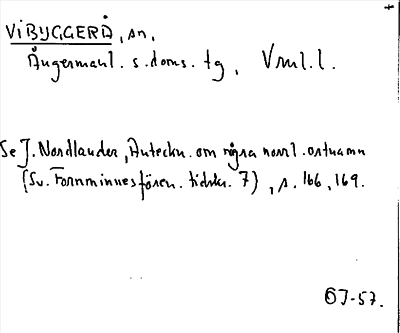 VIBYGGERÅ, sn,
Ångermanl. s. doms. tg, Vrnl. l.
Se J. Nordlander, Anteckn. om några norrl. ortnamn
(Sv. Fornminnesfören. tidskr. 7), s. 166, 169.
ÖJ-57.